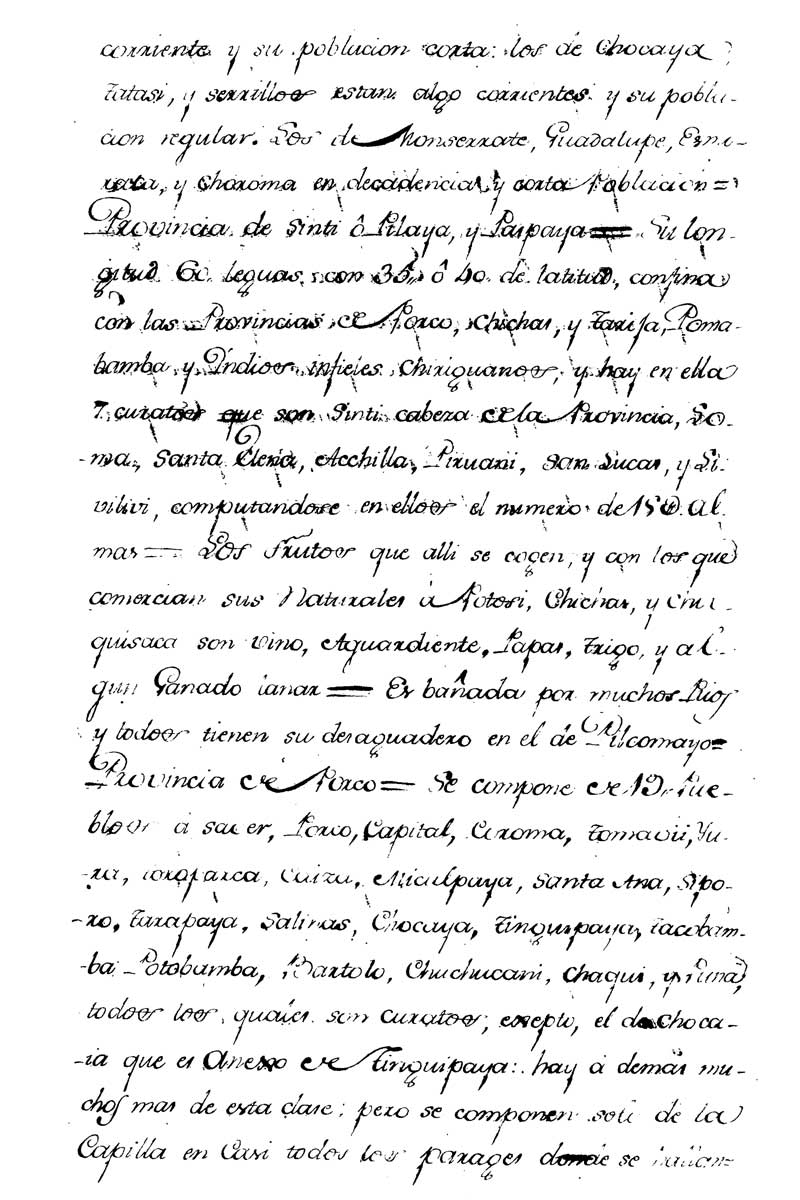 corriente y su poblacion corta: los de Chocaya
tatasi, y serrillos estan algo corrientes y su pobla-
cion regular. Los de Monserrate, Guadalupe, Esmo-
raca, y Choroma en decadencia y corta Poblacion =
Provincia de Sinti ô Pilaya, y Paspaya = Su lon-
gitud 60 leguas con 35 ô 40 de latitud, confina
con las Provincias de Porco, Chichas, y Tarija, Poma-
bamba y Yndios infieles Chiriguanos, y hay en ella
7 curatos que son Sinti cabeza de la Provincia, Lo-
ma, Santa Elena, Acchilla, Piruani, San Lucas, y Li-
vilivi, computandose en ellos el numero de al-
mas = Los frutos que alli se cogen, y con los que
comercian sus Naturales á Potosi, Chichas, y Chu-
quisaca son vino, Aguardiente, Papas, trigo, y al-
gun Ganado lanar = Es bañada por muchos Rios
y todos tienen su desaguadero en el de Pilcomayo=
Provincia de Porco = Se compone de 19 Pue-
blos á saver, Porco, Capital, Coroma, tomavi, Yu-
ra, toropalca, Caiza, Miculpaya, Santa Ana, Sipo-
ro, Tarapaya, Salinas, Chocaya, tinquipaya, tacobam-
ba Potobamba, Bartolo, Chuchucani, Chaqui, y Puna,
todos los quales son curatos, exepto, el de Choca-
ia que es Anexo de Tinguipaya: hay á demás mu-
chos mas de esta clase; pero se componen solo de la
Capilla en Casi todos los parages donde se hallan=